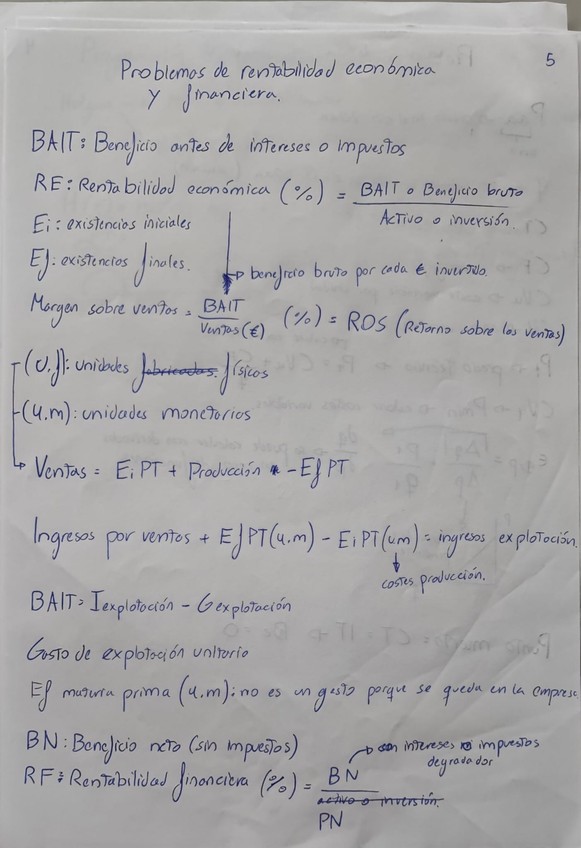 5
Problemas de rentabilidad económica
y financiera.
BAIT: Beneficio antes de intereses o impuestos
RE: Rentabilidad económica (%) = BAIT o Beneficio bruto
Activo o inversión.
Ei: existencias iniciales
Ef: existencias finales.
beneficio bruto por cada € invertido.
Margen sobre ventas = BAIT (%) = ROS (Retorno sobre las ventas)
Ventas (€)
(U.f): unidades fabricadas. físicas
(u.m): unidades monetarias
Ventas = Ei PT + Producción - Ef PT
Ingresos por ventas + Ef PT (u.m) - Ei PT (um) = ingresos explotación.
costes producción.
BAIT = Iexplotación - Gexplotación
Gasto de explotación unitario
Ef materia prima (u.m): no es un gasto porque se queda en la empresa
BN: Beneficio neto (sin impuestos)
intereses impuestos
degradador
RF: Rentabilidad financiera (%) = BN
activo o inversión.
PN